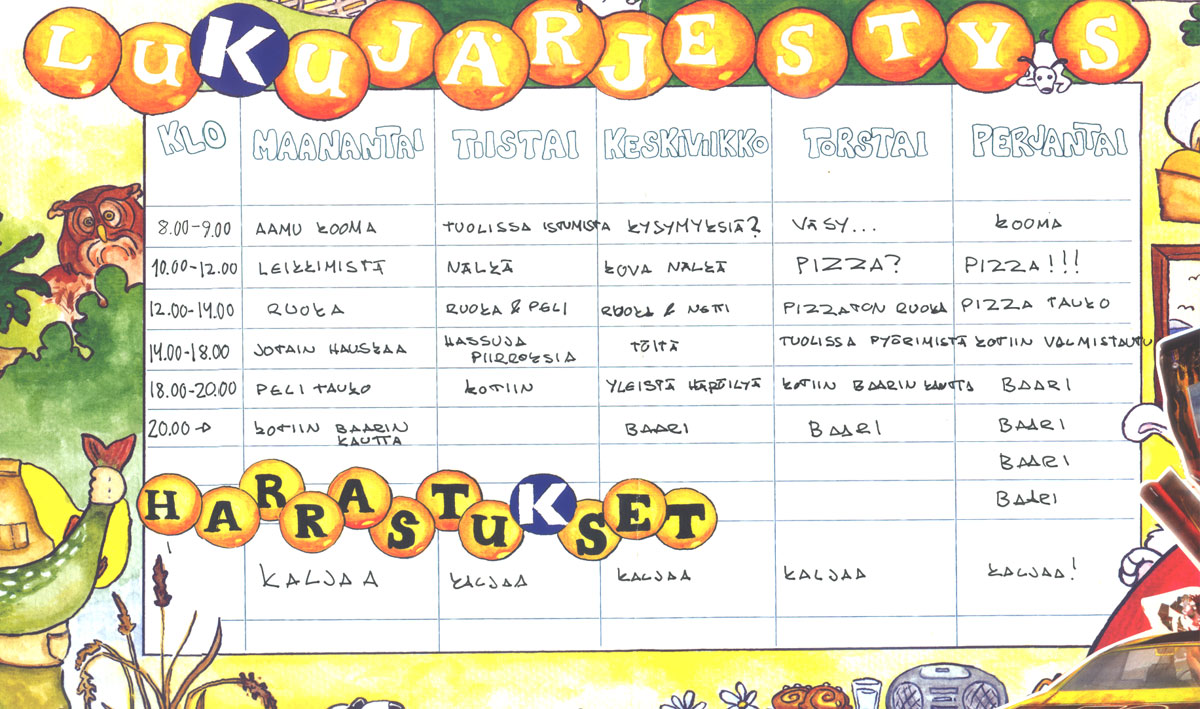 LUKUJÄRJESTYS
KLO MAANANTAI TIISTAI KESKIVIIKKO TORSTAI PERJANTAI
8.00-9.00 AAMU KOOMA TUOLISSA ISTUMISTA KYSYMYKSIÄ? VÄSY... KOOMA
10.00-12.00 LEIKKIMISTÄ NÄLKÄ KOVA NÄLKÄ PIZZA? PIZZA!!!
12.00-14.00 RUOKA RUOKA & PELI RUOKA & NETTI PIZZATON RUOKA PIZZA TAUKO
14.00-18.00 JOTAIN HAUSKAA HASSUJA PIIRROKSIA TÖITÄ TUOLISSA PYÖRIMISTÄ KOTIIN VALMISTAUTU
18.00-20.00 PELI TAUKO KOTIIN YLEISTÄ HÄRÖILYÄ KOTIIN BAARIN KAUTTA BAARI
20.00→ KOTIIN BAARIN KAUTTA BAARI BAARI BAARI
BAARI
BAARI
HARRASTUKSET
KALJAA KALJAA KALJAA KALJAA KALJAA!